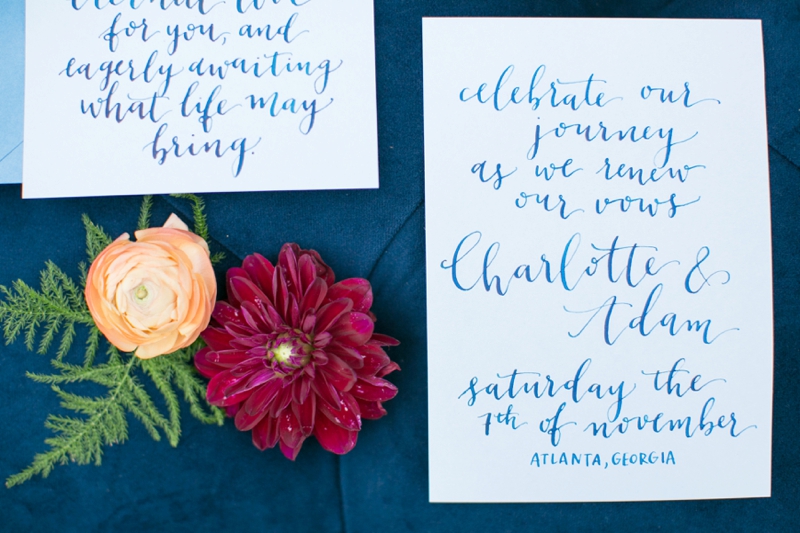 eternal love
for you, and
eagerly awaiting
what life may
bring.
celebrate our
journey
as we renew
our vows
Charlotte &
Adam
saturday the
7th of november
ATLANTA, GEORGIA